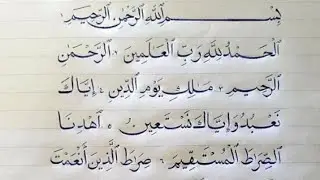 بِسْمِ ٱللَّهِ ٱلرَّحْمَٰنِ ٱلرَّحِيمِ ١
ٱلْحَمْدُ لِلَّهِ رَبِّ ٱلْعَٰلَمِينَ ٢ ٱلرَّحْمَٰنِ
ٱلرَّحِيمِ ٣ مَٰلِكِ يَوْمِ ٱلدِّينِ ٤ إِيَّاكَ
نَعْبُدُ وَإِيَّاكَ نَسْتَعِينُ ٥ ٱهْدِنَا
ٱلصِّرَٰطَ ٱلْمُسْتَقِيمَ ٦ صِرَٰطَ ٱلَّذِينَ أَنْعَمْتَ